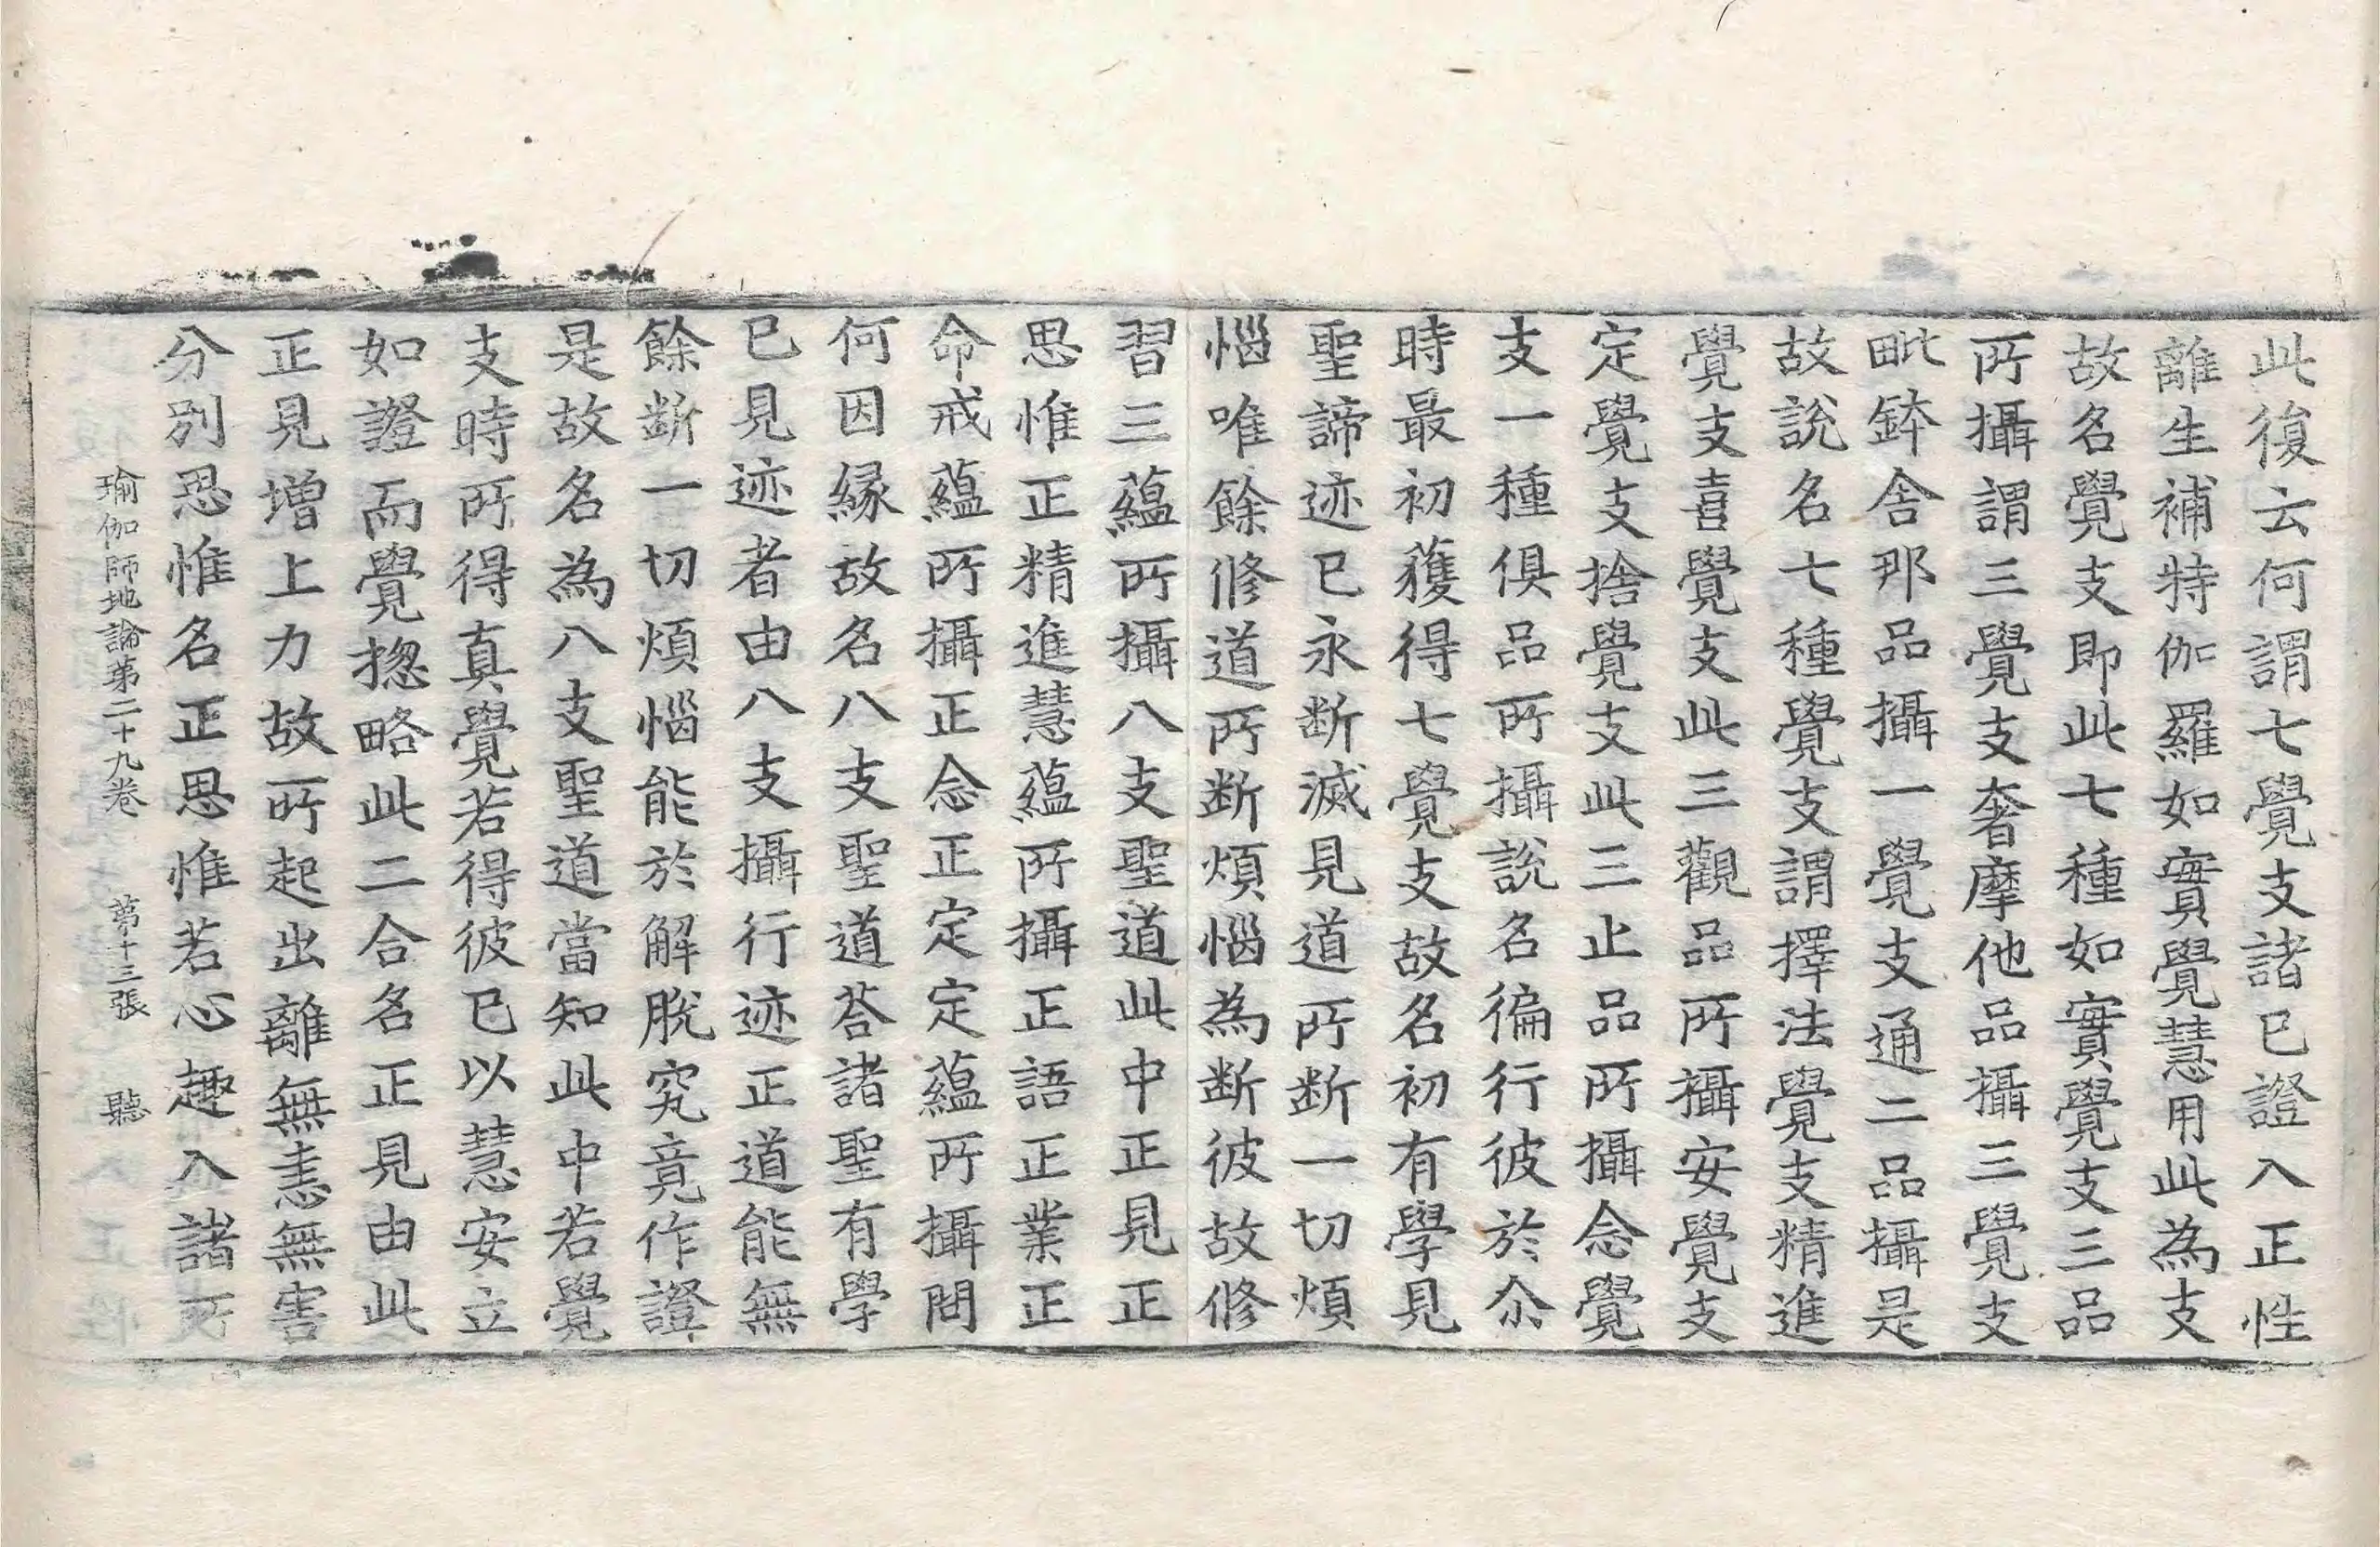 此復云何謂七覺支諸已證入正性
離生補特伽羅如實覺慧用此為支
故名覺支即此七種如實覺支三品
所攝謂三覺支奢摩他品攝三覺支
毗鉢舍那品攝一覺支通二品攝是
故說名七種覺支謂擇法覺支精進
覺支喜覺支此三觀品所攝安覺支
定覺支捨覺支此三止品所攝念覺
支一種俱品所攝說名徧行彼於尒
時最初獲得七覺支故名初有學見
聖諦迹已永断滅見道所断一切煩
惱唯餘修道所断煩惱為断彼故修
習三蘊所攝八支聖道此中正見正
思惟正精進慧蘊所攝正語正業正
命戒蘊所攝正念正定定蘊所攝問
何因緣故名八支聖道荅諸聖有學
已見迹者由八支攝行迹正道能無
餘断一切煩惱能於解脫究竟作證
是故名為八支聖道當知此中若覺
支時所得真覺若得彼已以慧安立
如證而覺揔略此二合名正見由此
正見增上力故所起出離無恚無害
分別思惟名正思惟若心趣入諸所
瑜伽師地論第二十九卷 第十三張 聽